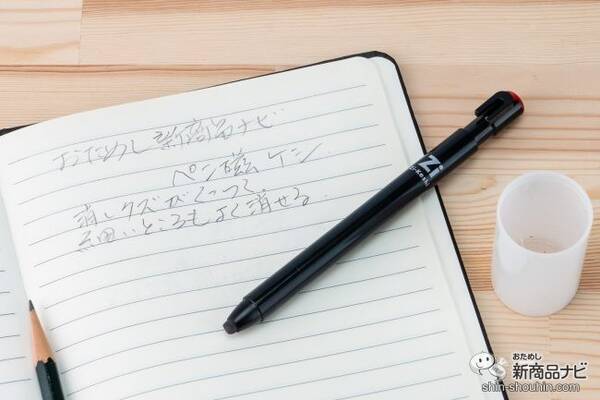 おためし新商品ナビ
ペン磁ケシ
消しクズがくっつく
細いところもよく消せる
Zi
おためし
新商品ナビ
shin-shouhin.com